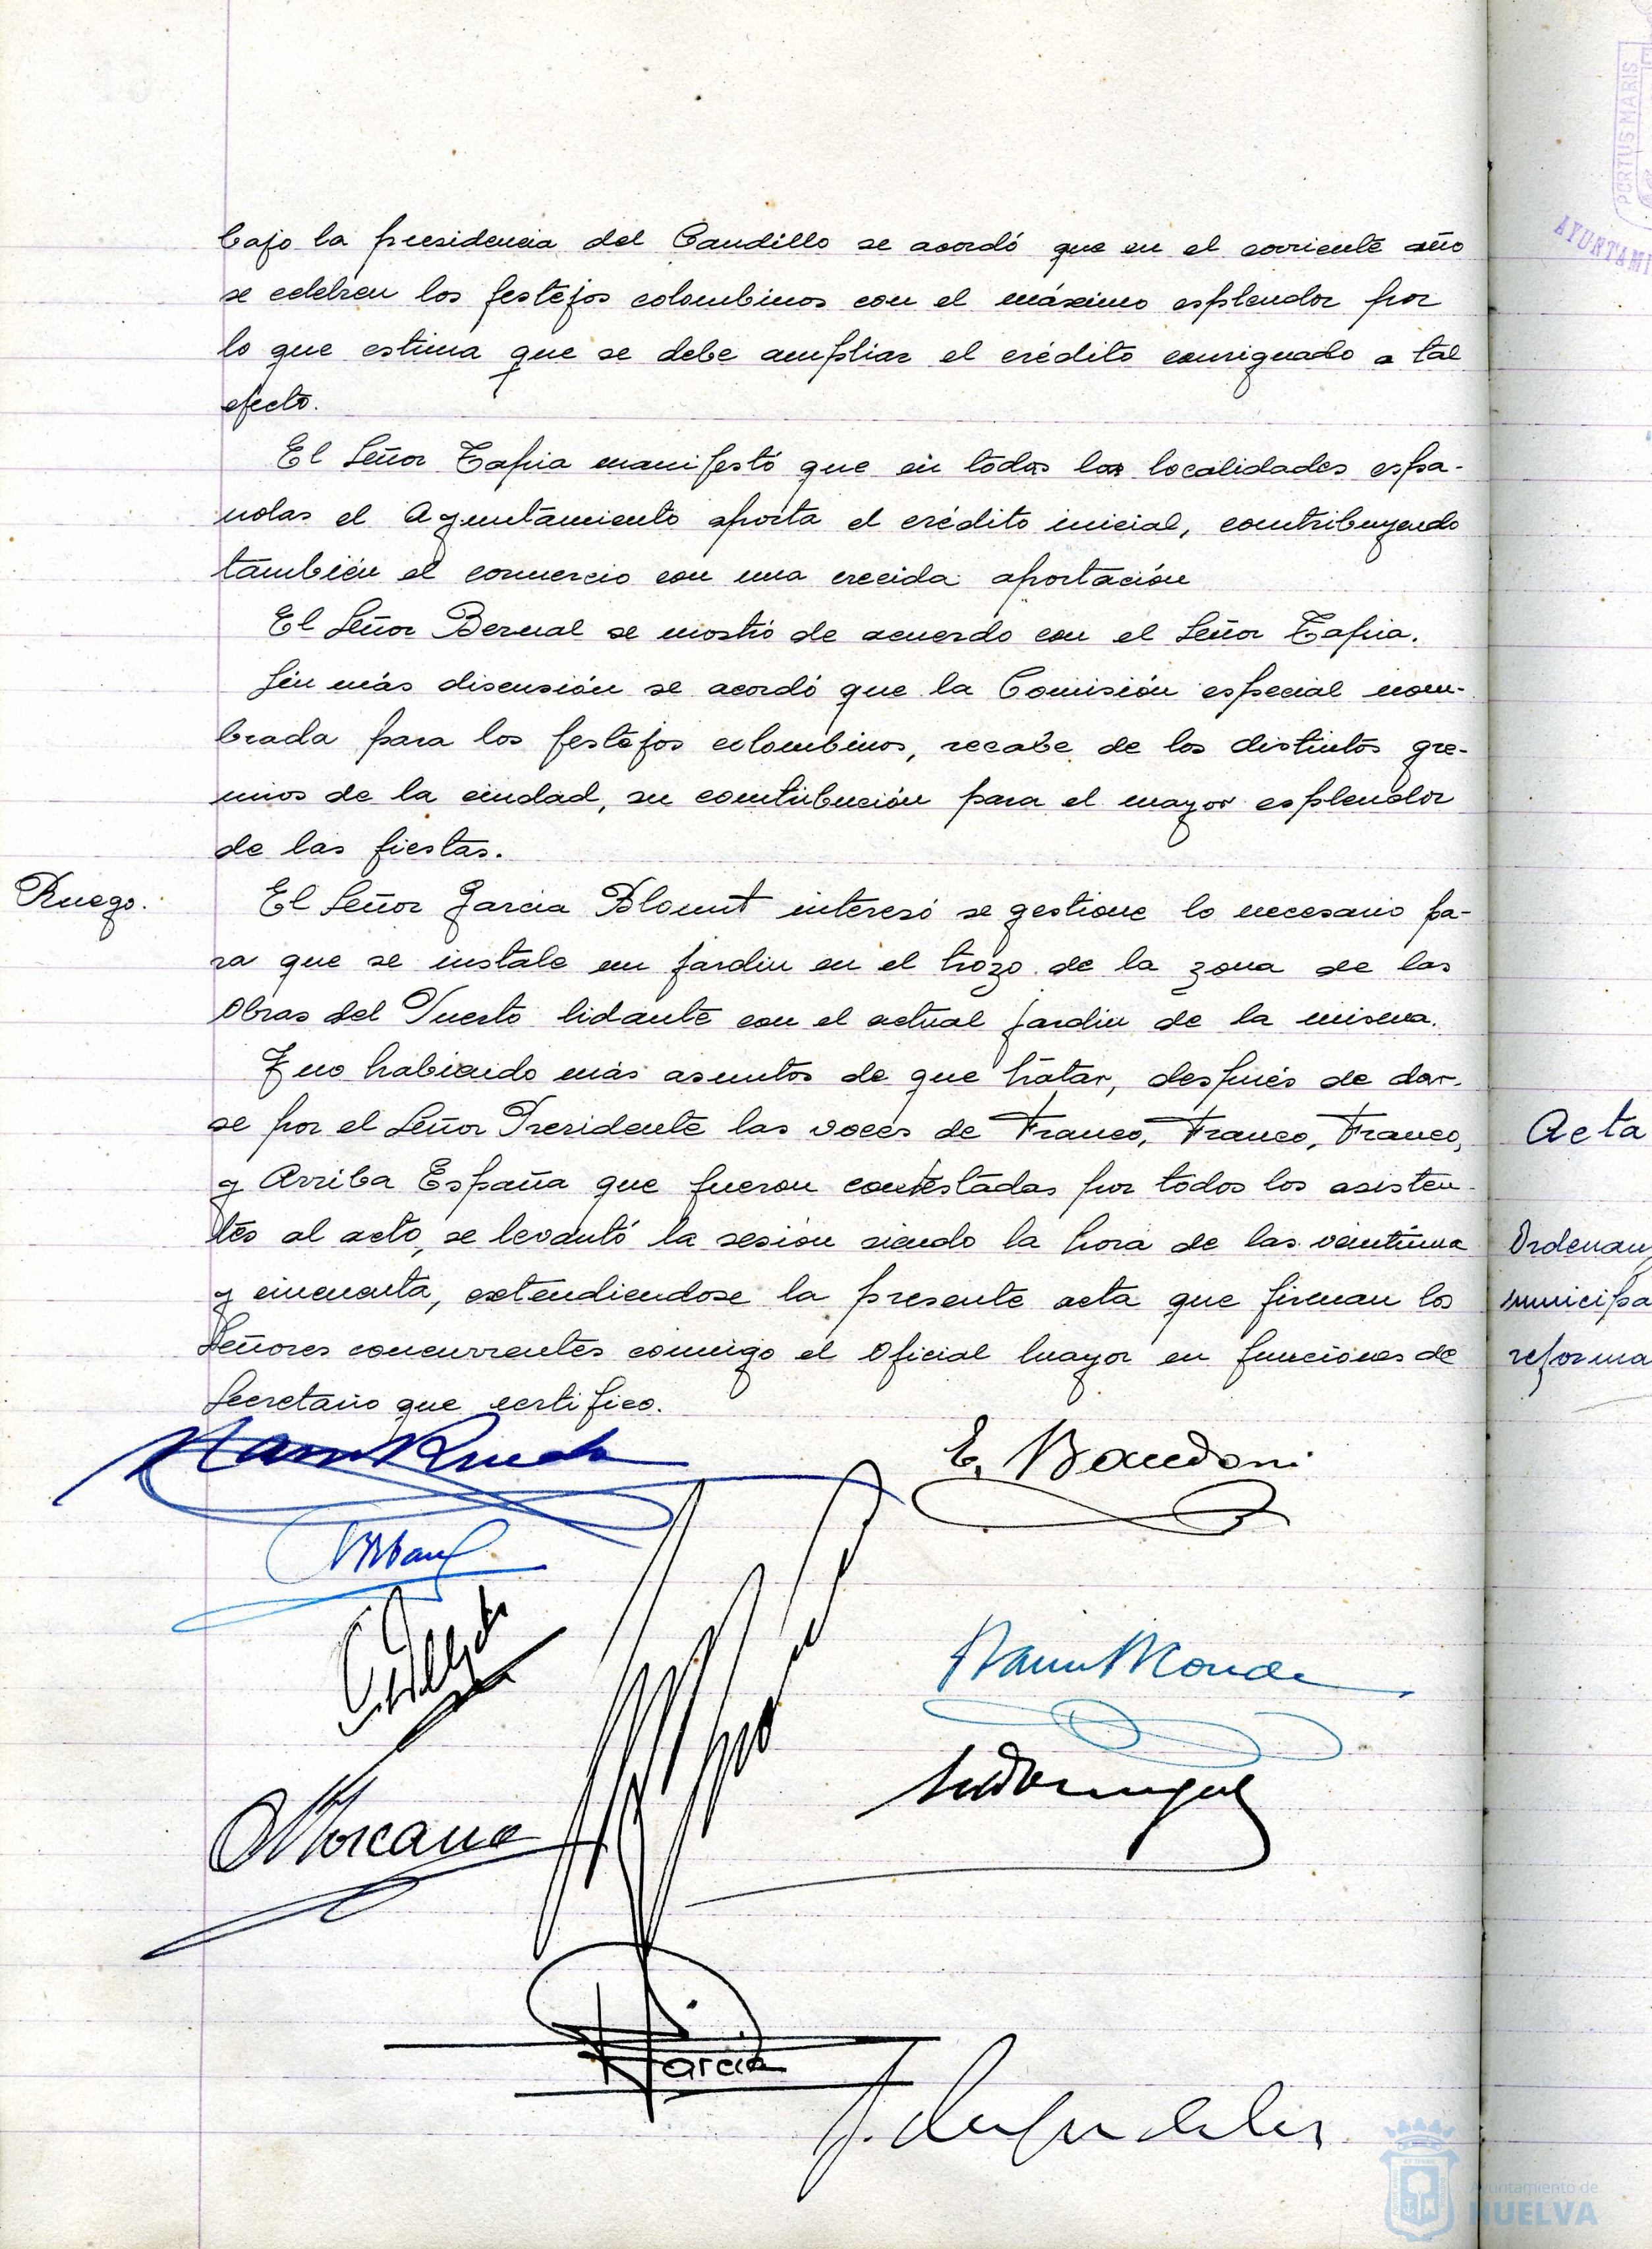 bajo la presidencia del Caudillo se acordó que en el corriente año
se celebren los festejos colombinos con el máximo esplendor por
lo que estima que se debe ampliar el crédito consignado a tal
efecto.
El Señor Tapia manifestó que en todas las localidades espa-
nolas el Ayuntamiento aporta el crédito inicial, contribuyendo
también el comercio con una crecida aportación
El Señor Bernal se mostró de acuerdo con el Señor Tapia.
Sin más discusión se acordó que la Comisión especial nom-
brada para los festejos colombinos, recabe de los distintos gre-
mios de la ciudad, su contribución para el mayor esplendor
de las fiestas.
Ruego.
El Señor Garcia Blount interesó se gestione lo necesario pa-
ra que se instale un jardin en el trozo de la zona de las
Obras del Puerto lidante con el actual jardin de la misma.
Y no habiendo más asuntos de que tratar, después de dar-
se por el Señor Presidente las voces de Franco, Franco, Franco,
y Arriba España que fueron contestadas por todos los asisten-
tes al acto, se levantó la sesión siendo la hora de las veintiuna
y cincuenta, extendiendose la presente acta que firman los
Señores concurrentes conmigo el Oficial Mayor en funciones de
Secretario que certifico.
E.
Garcia
PORTUS MARIS
AYUNTAMI
Acta
Ordenanz
municipa
reforma
Ayuntamiento de
HUELVA